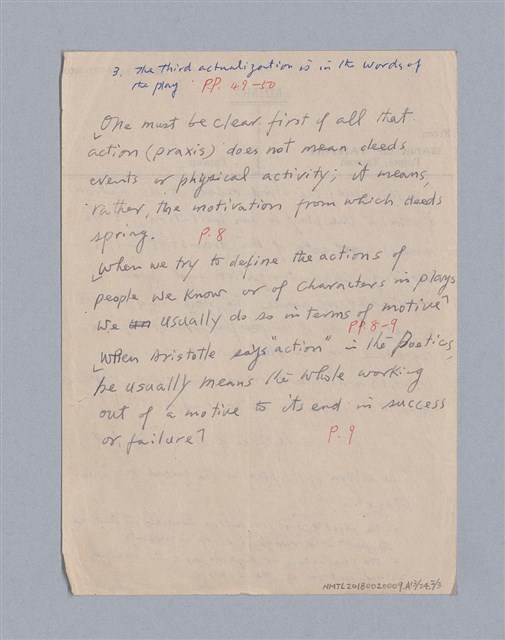 3. the third actualization is in the words of
the play PP. 49-50
One must be clear first of all that
action (praxis) does not mean deeds,
events or physical activity; it means,
rather, the motivation from which deeds
spring. P. 8
When we try to define the actions of
people we know or of characters in plays
we usually do so in terms of motive
PP. 8-9
When Aristotle says "action" in the Poetics,
he usually means the whole working
out of a motive to its end in success
or failure P. 9
NMTL20180020009